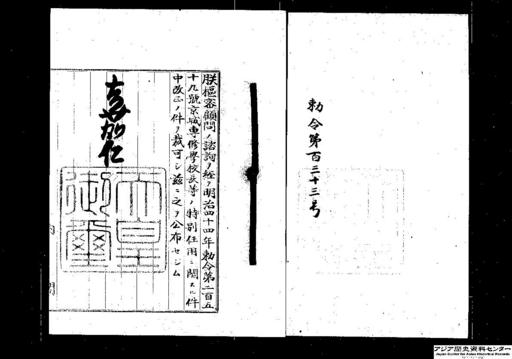 勅令第百三十三号
朕樞密顧問ノ諮詢ヲ經テ明治四十四年勅令第二百五
十九號京城專修學校長等ノ特別任用ニ關スル件
中改正ノ件ヲ裁可シ茲ニ之ヲ公布セシム
嘉仁
天皇
御璽
内閣
アジア歴史資料センター
Japan Center for Asian Historical Records